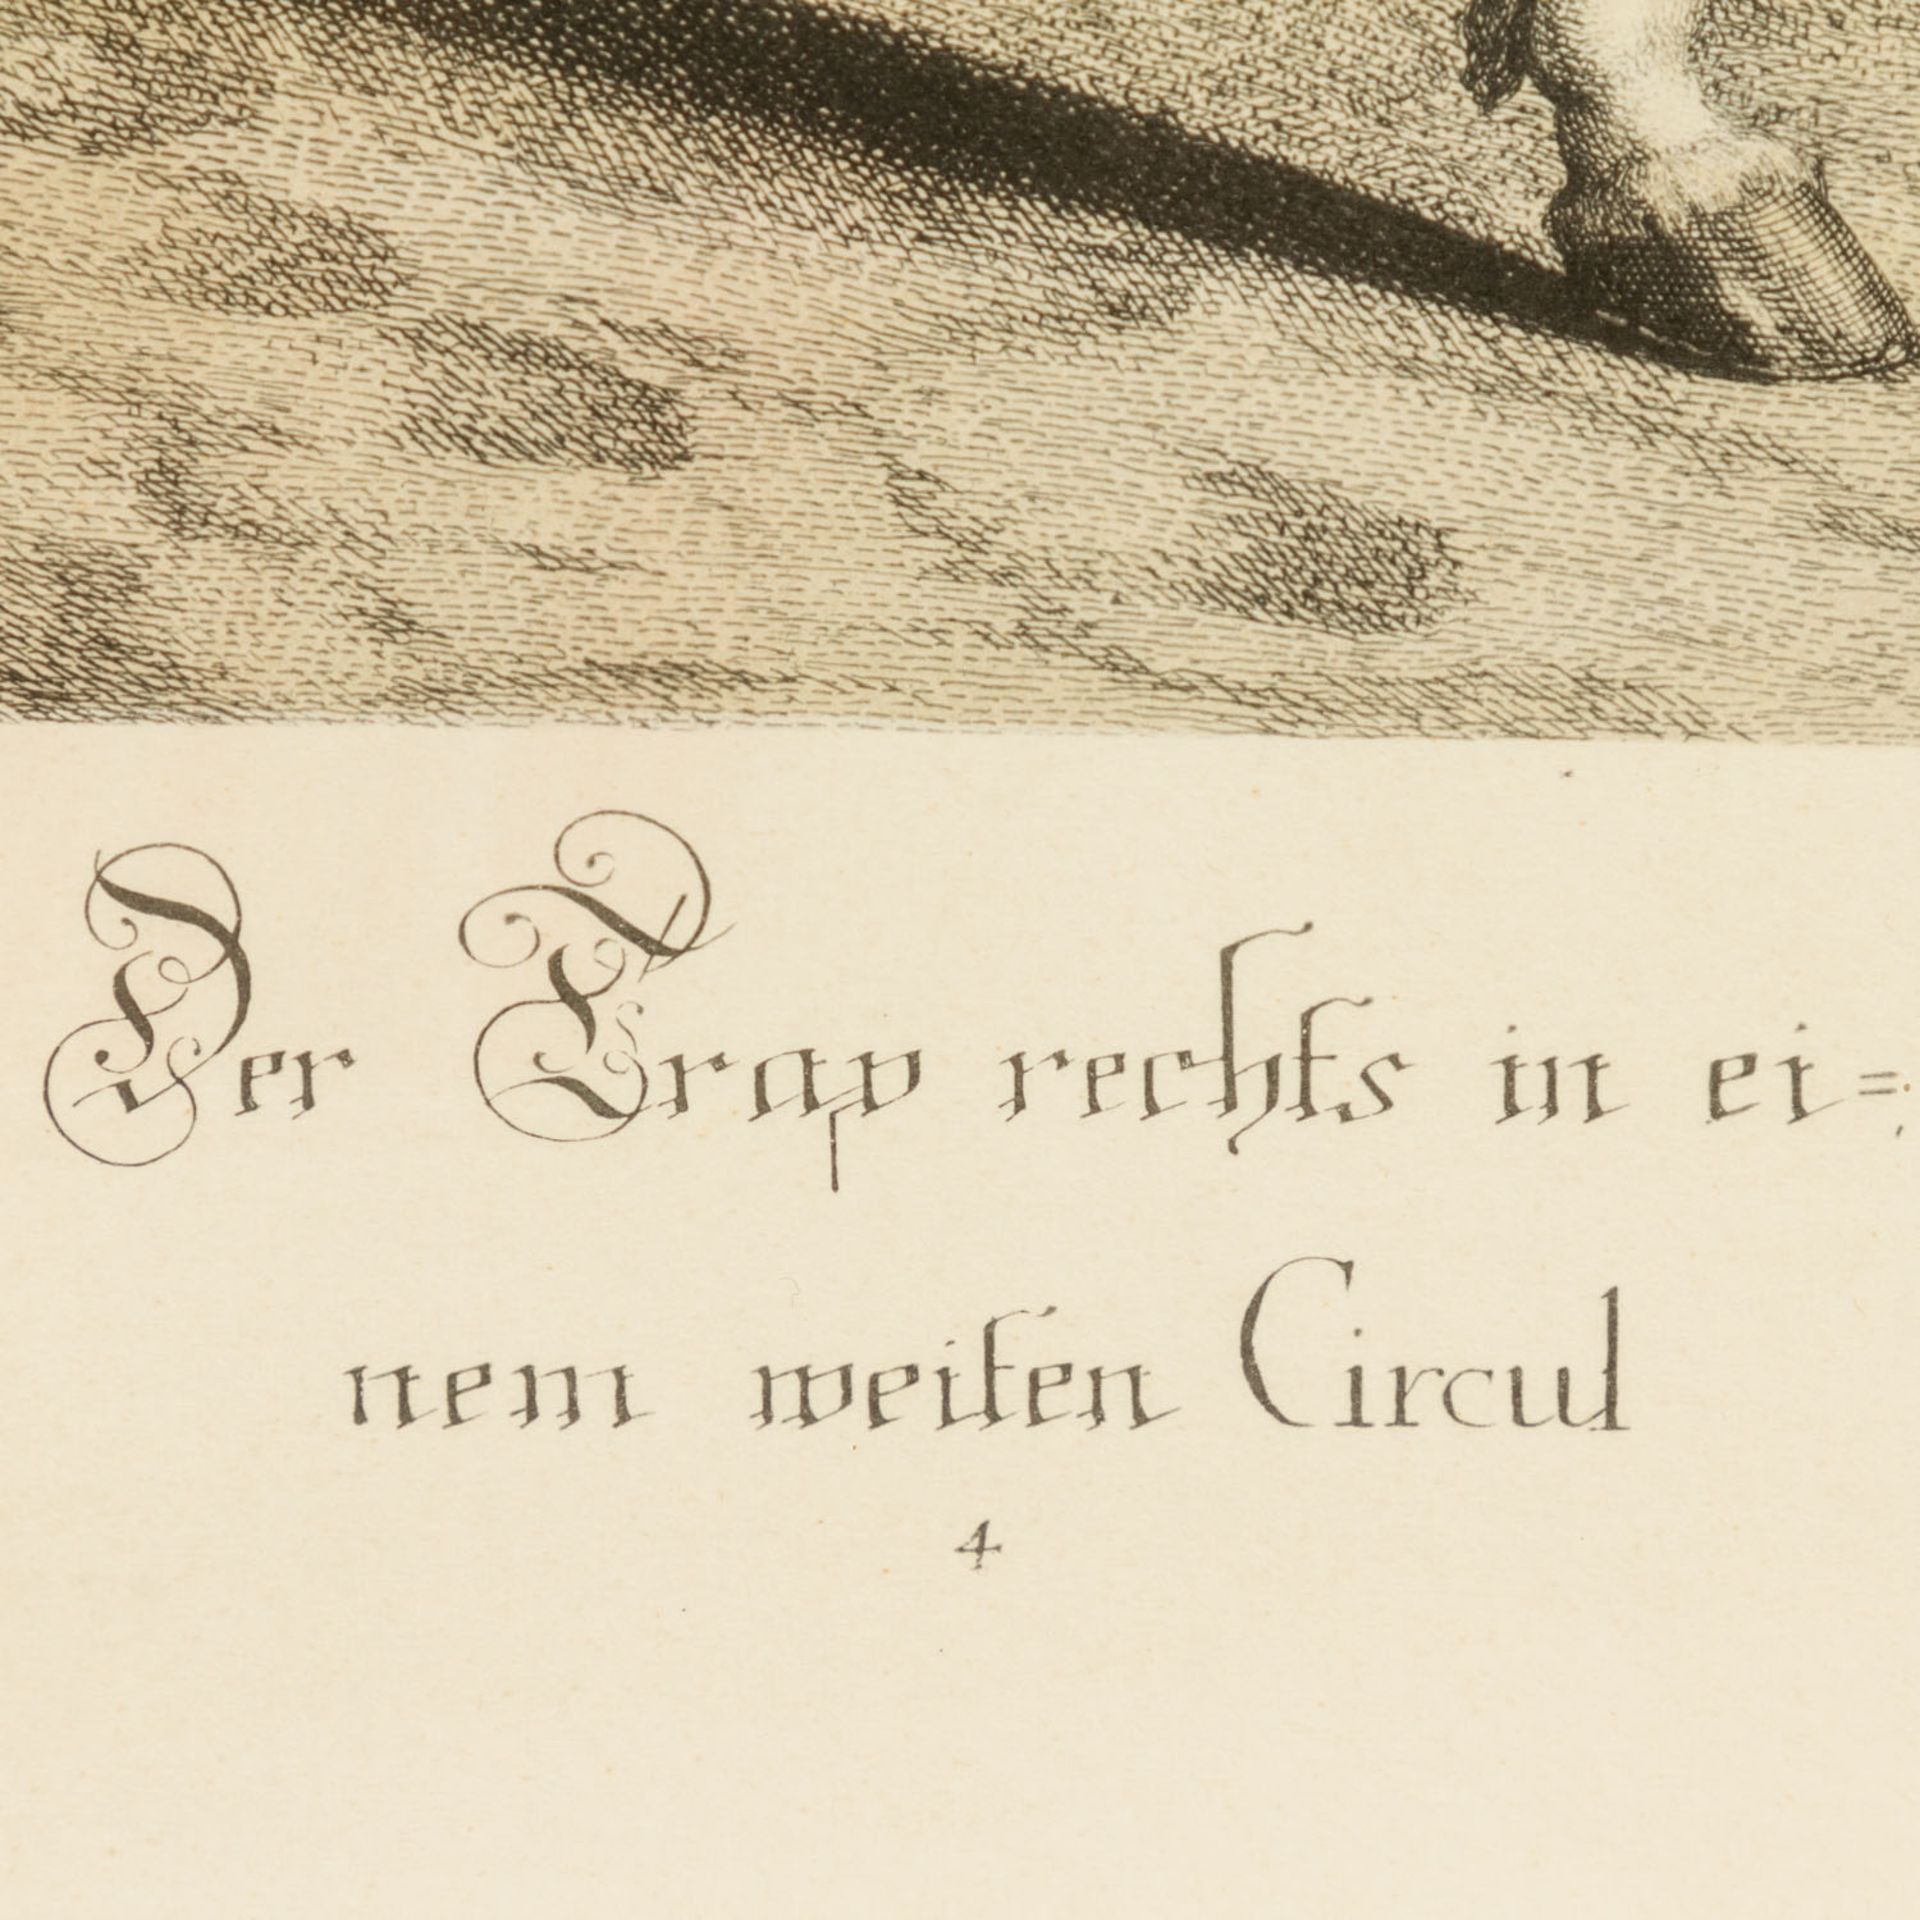 Der Trap rechts in ei=
nem weiten Circul
4